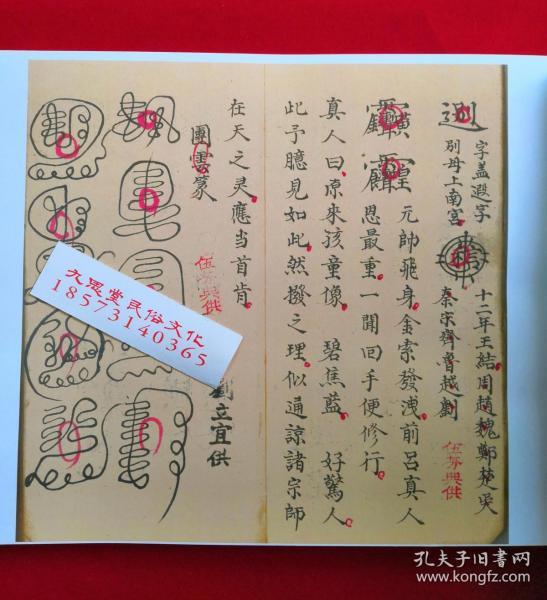 字盖遐字
别母上南宫
十二年王结周趙魏鄭楚吴
秦宋齊魯越劉
伍芬興供
元帥飛身金索發洩前呂真人
恩最重一開回手便修行
真人曰原來孩童像 碧焦蓝 好驚人
此予臆見如此然撥之理似通諒諸宗師
在天之灵應当首肯
團雲篆
伍芬興供
劉立宜供
九思堂民俗文化
18573140365
孔夫子旧书网
www.kongfz.com